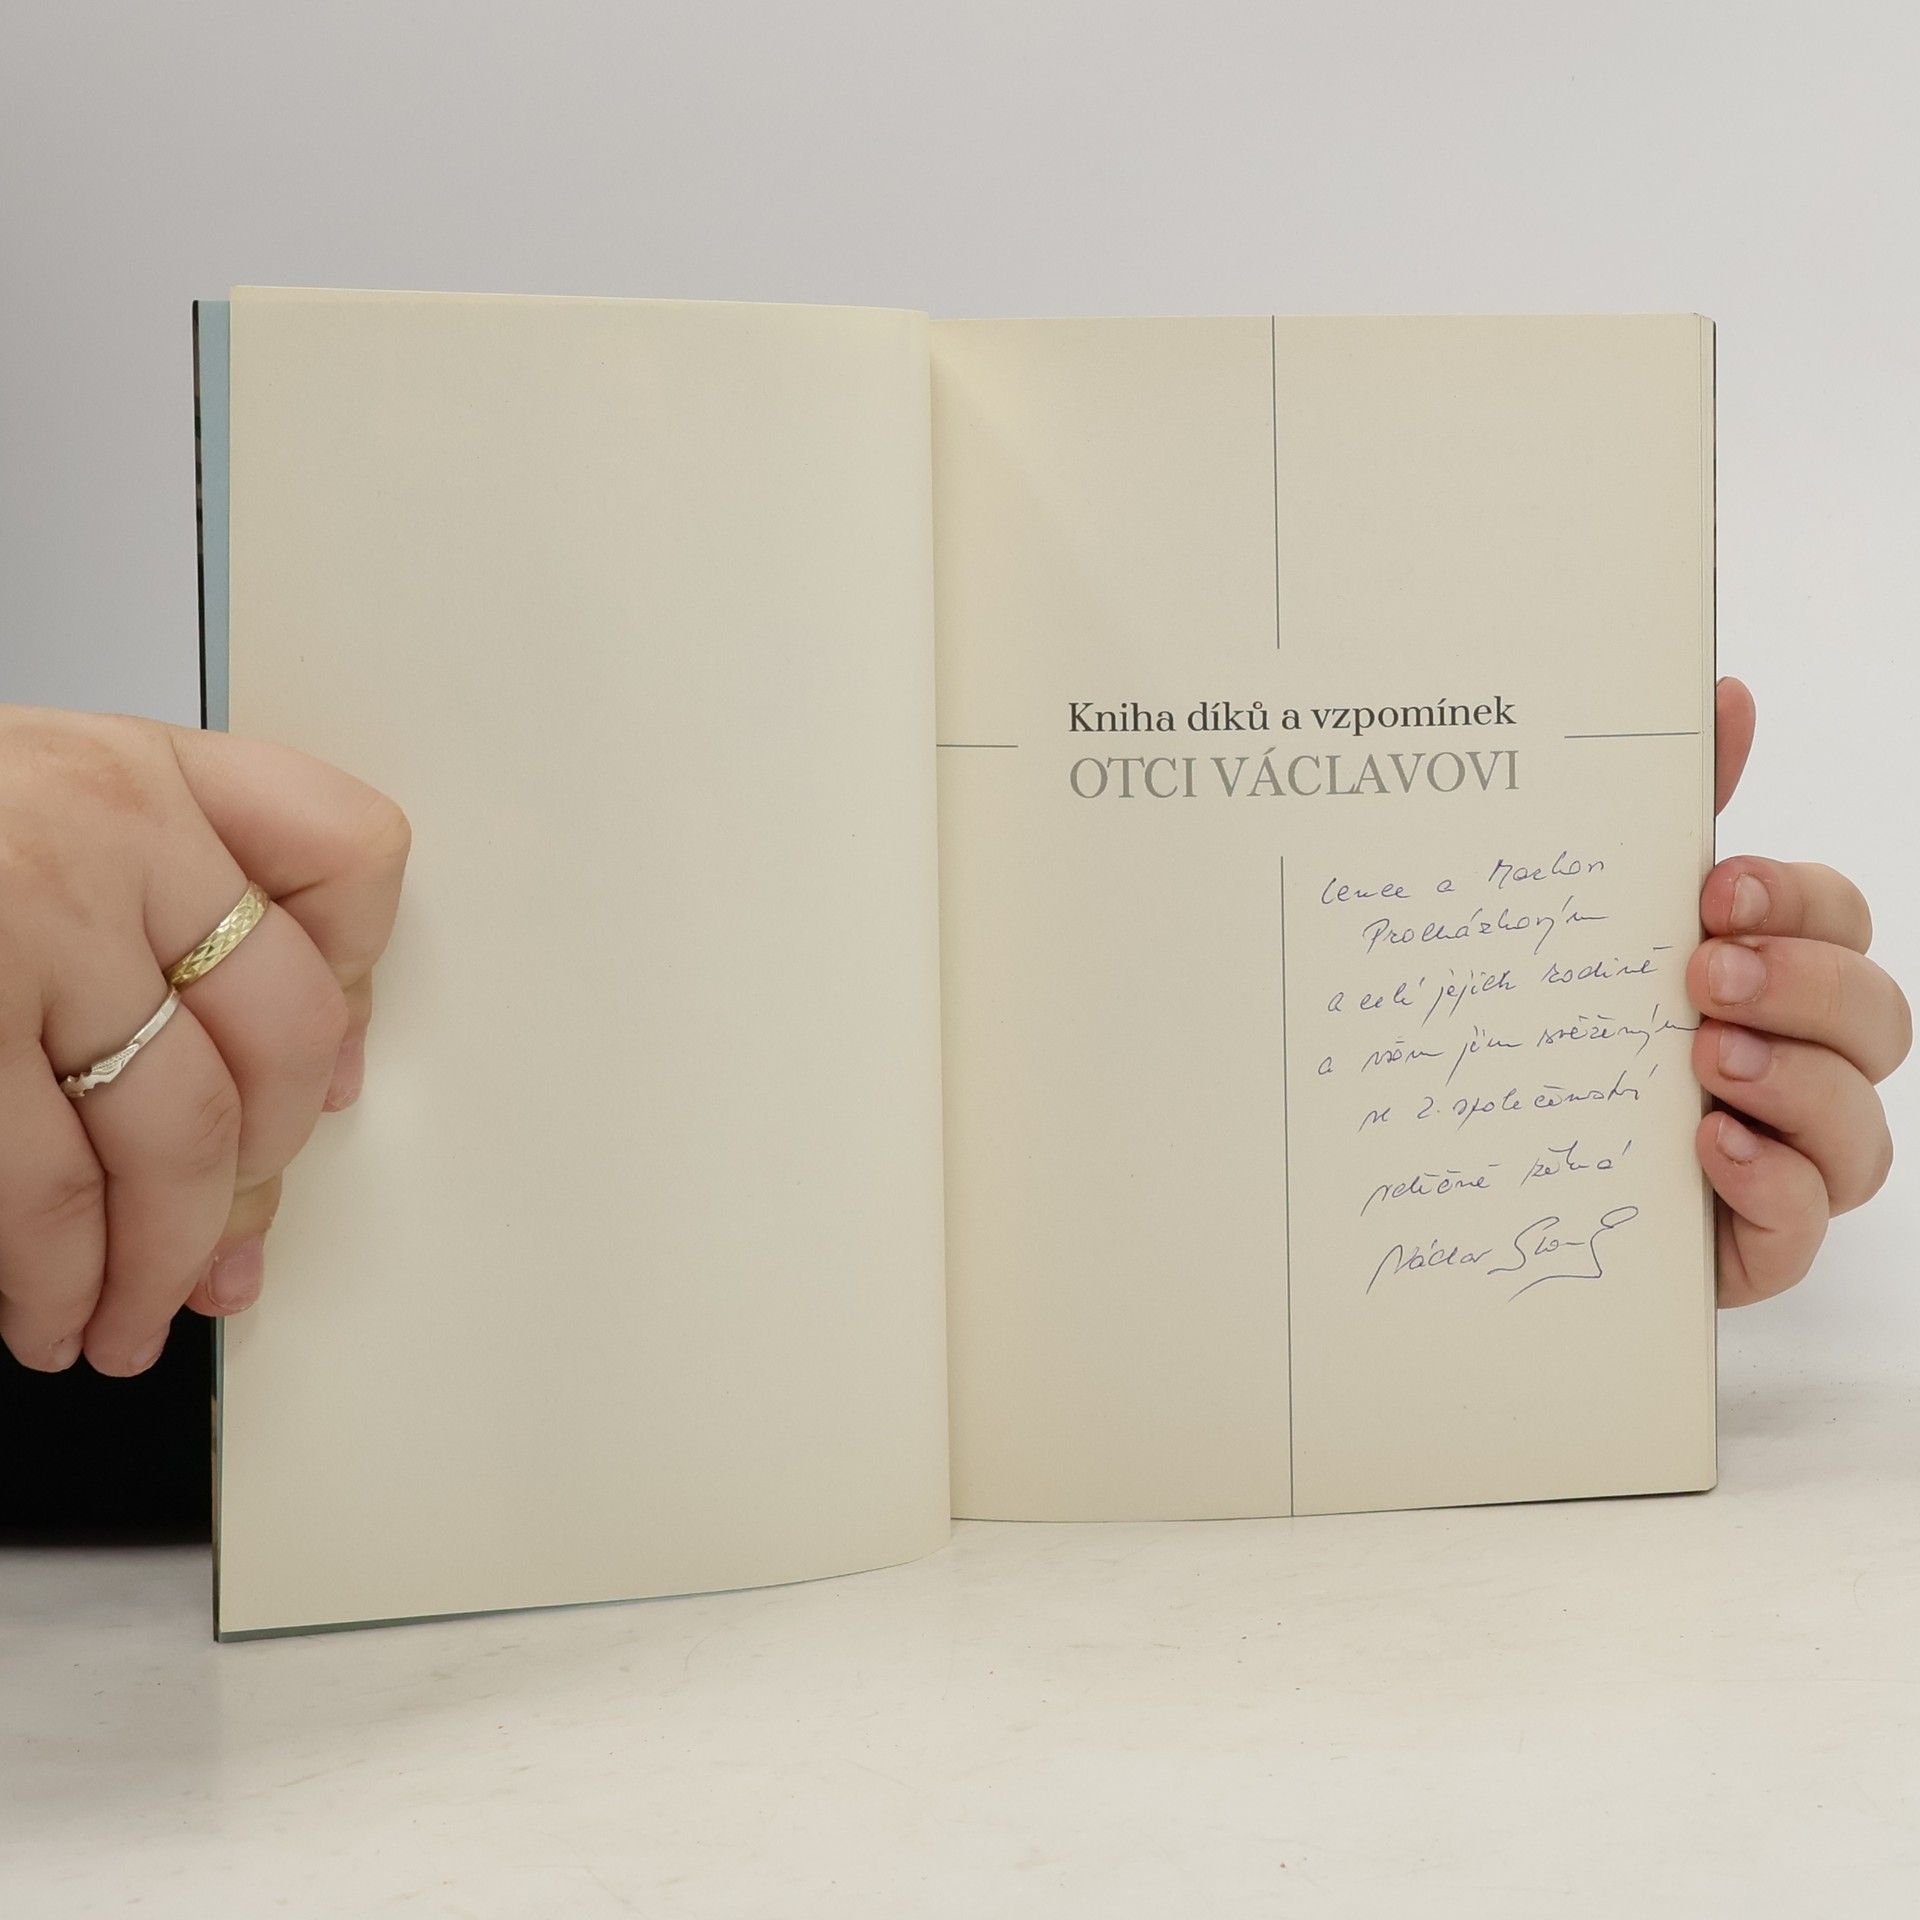 Kniha díků a vzpomínek
OTCI VÁCLAVOVI
Lence a
Procházkovým
a celé jejich rodině
a všem jim svěřeným
ve 2. společenství
vděčně žehná
Václav